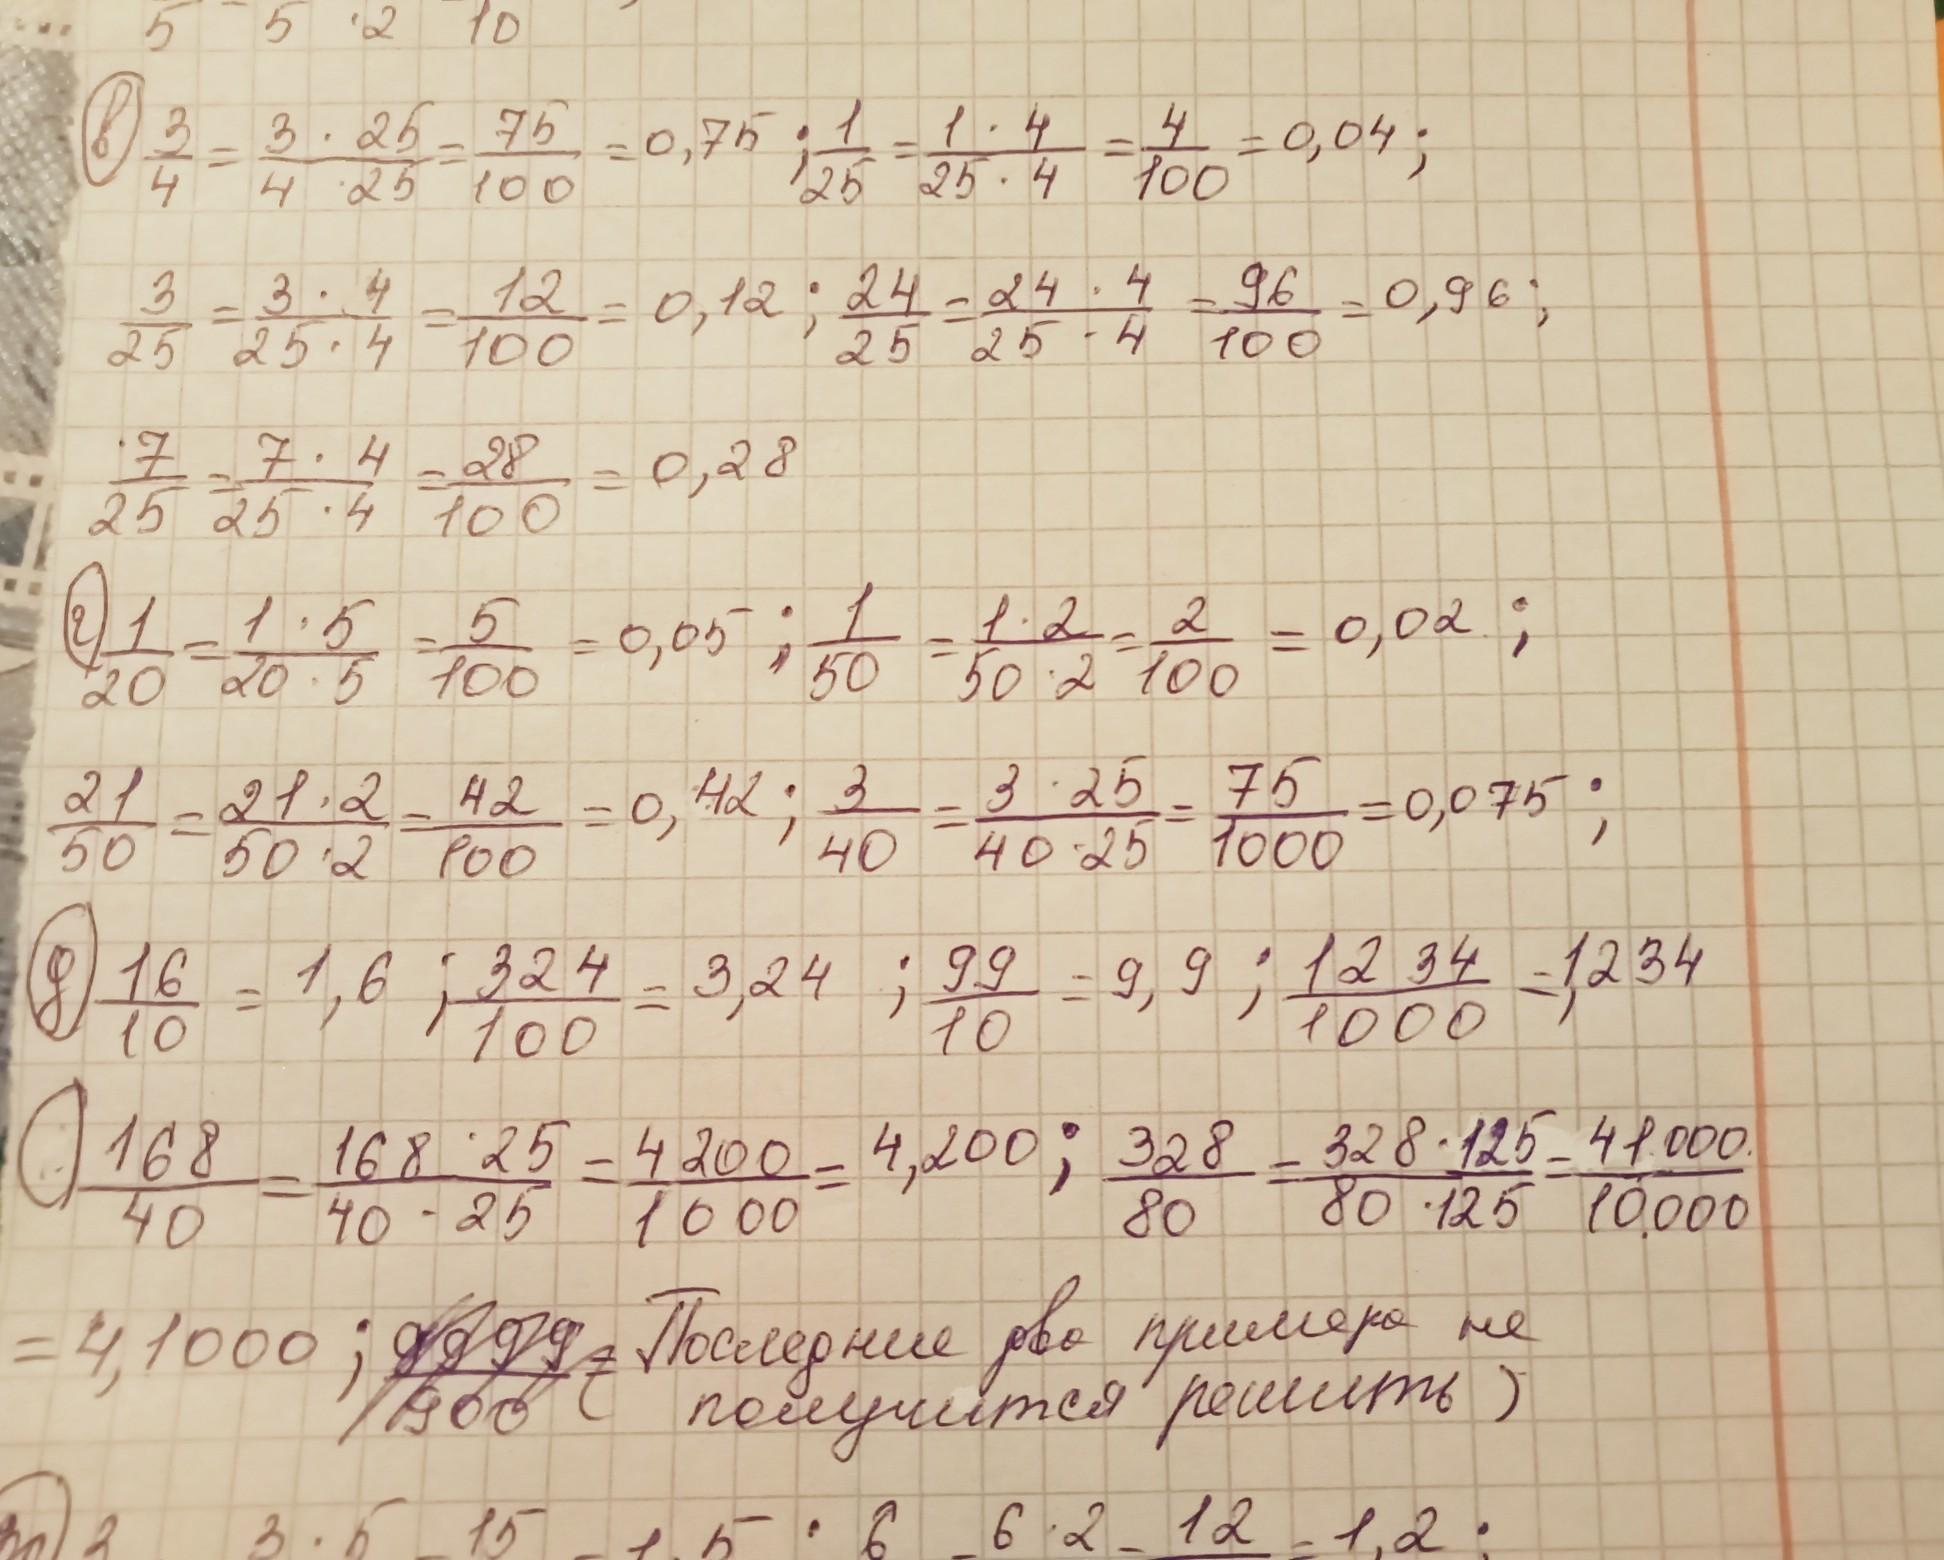 5 5 · 2 10
в) 3/4 = 3 · 25/4 · 25 = 75/100 = 0,75 ; 1/25 = 1 · 4/25 · 4 = 4/100 = 0,04 ;
3/25 = 3 · 4/25 · 4 = 12/100 = 0,12 ; 24/25 = 24 · 4/25 · 4 = 96/100 = 0,96 ;
7/25 = 7 · 4/25 · 4 = 28/100 = 0,28
г) 1/20 = 1 · 5/20 · 5 = 5/100 = 0,05 ; 1/50 = 1 · 2/50 · 2 = 2/100 = 0,02 ;
21/50 = 21 · 2/50 · 2 = 42/100 = 0,42 ; 3/40 = 3 · 25/40 · 25 = 75/1000 = 0,075 ;
д) 16/10 = 1,6 ; 324/100 = 3,24 ; 99/10 = 9,9 ; 1234/1000 = 1,234
168/40 = 168 · 25/40 · 25 = 4200/1000 = 4,200 ; 328/80 = 328 · 125/80 · 125 = 41.000/10.000
= 4,1000 ; = Последние два примера не
( получится решить )
3 3 · 5 = 15 = 1,5 ; 6 = 6 · 2 = 12 = 1,2 ;